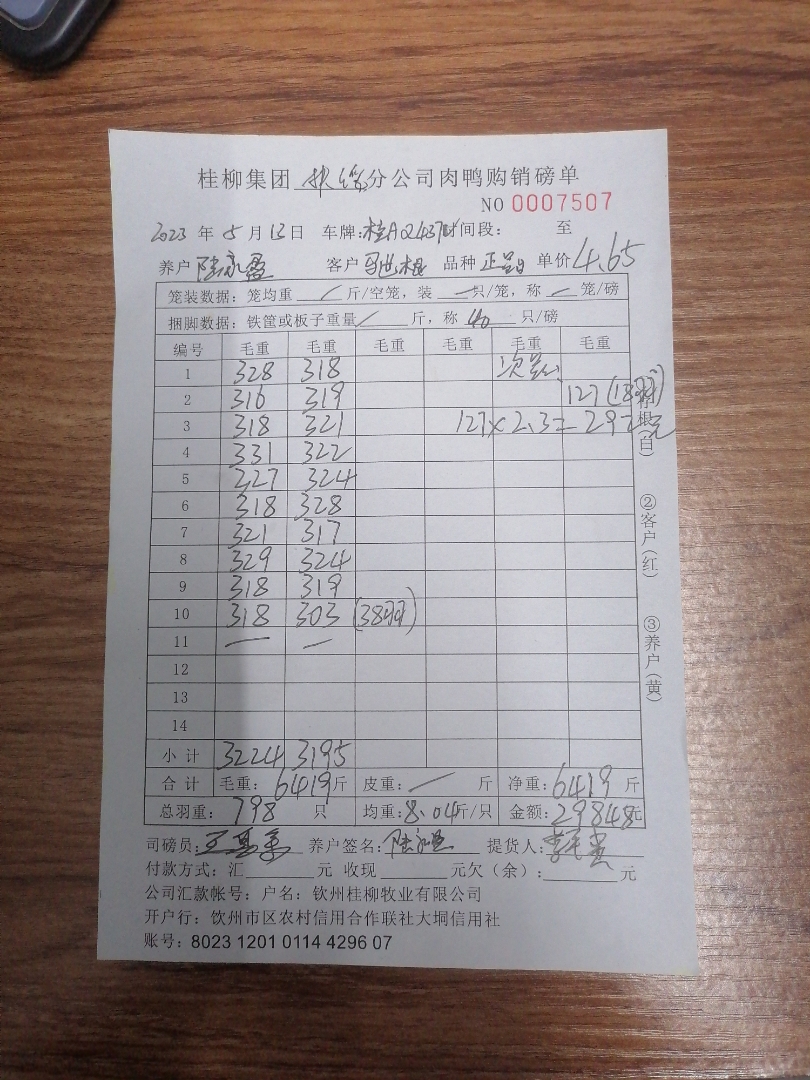 桂柳集团 扶绥 分公司肉鸭购销磅单
NO 0007507
2023 年 5 月 13 日 车牌: 桂A 时间段: 至
养户 陆永盈 客户 品种 正品 单价 4.65
笼装数据: 笼均重 / 斤/空笼, 装 一 只/笼, 称 一 笼/磅
捆脚数据: 铁筐或板子重量 / 斤, 称 40 只/磅
编号 毛重 毛重 毛重 毛重 毛重 毛重
1 328 318 次品
2 316 319 127 (18羽)
3 318 321 127×2.3=292元
4 331 322
5 327 324
6 318 328
7 321 317
8 329 324
9 318 319
10 318 303 (38羽)
11 — —
12
13
14
小计 3224 3195
合计 毛重: 6419 斤 皮重: / 斤 净重: 6419 斤
总羽重: 798 只 均重: 8.04 斤/只 金额: 29848 元
司磅员: 养户签名: 陆永盈 提货人:
付款方式: 汇 元 收现 元欠(余): 元
公司汇款帐号: 户名: 钦州桂柳牧业有限公司
开户行: 钦州市区农村信用合作联社大垌信用社
账号: 8023 1201 0114 4296 07
存根(白)
②客户(红)
③养户(黄)